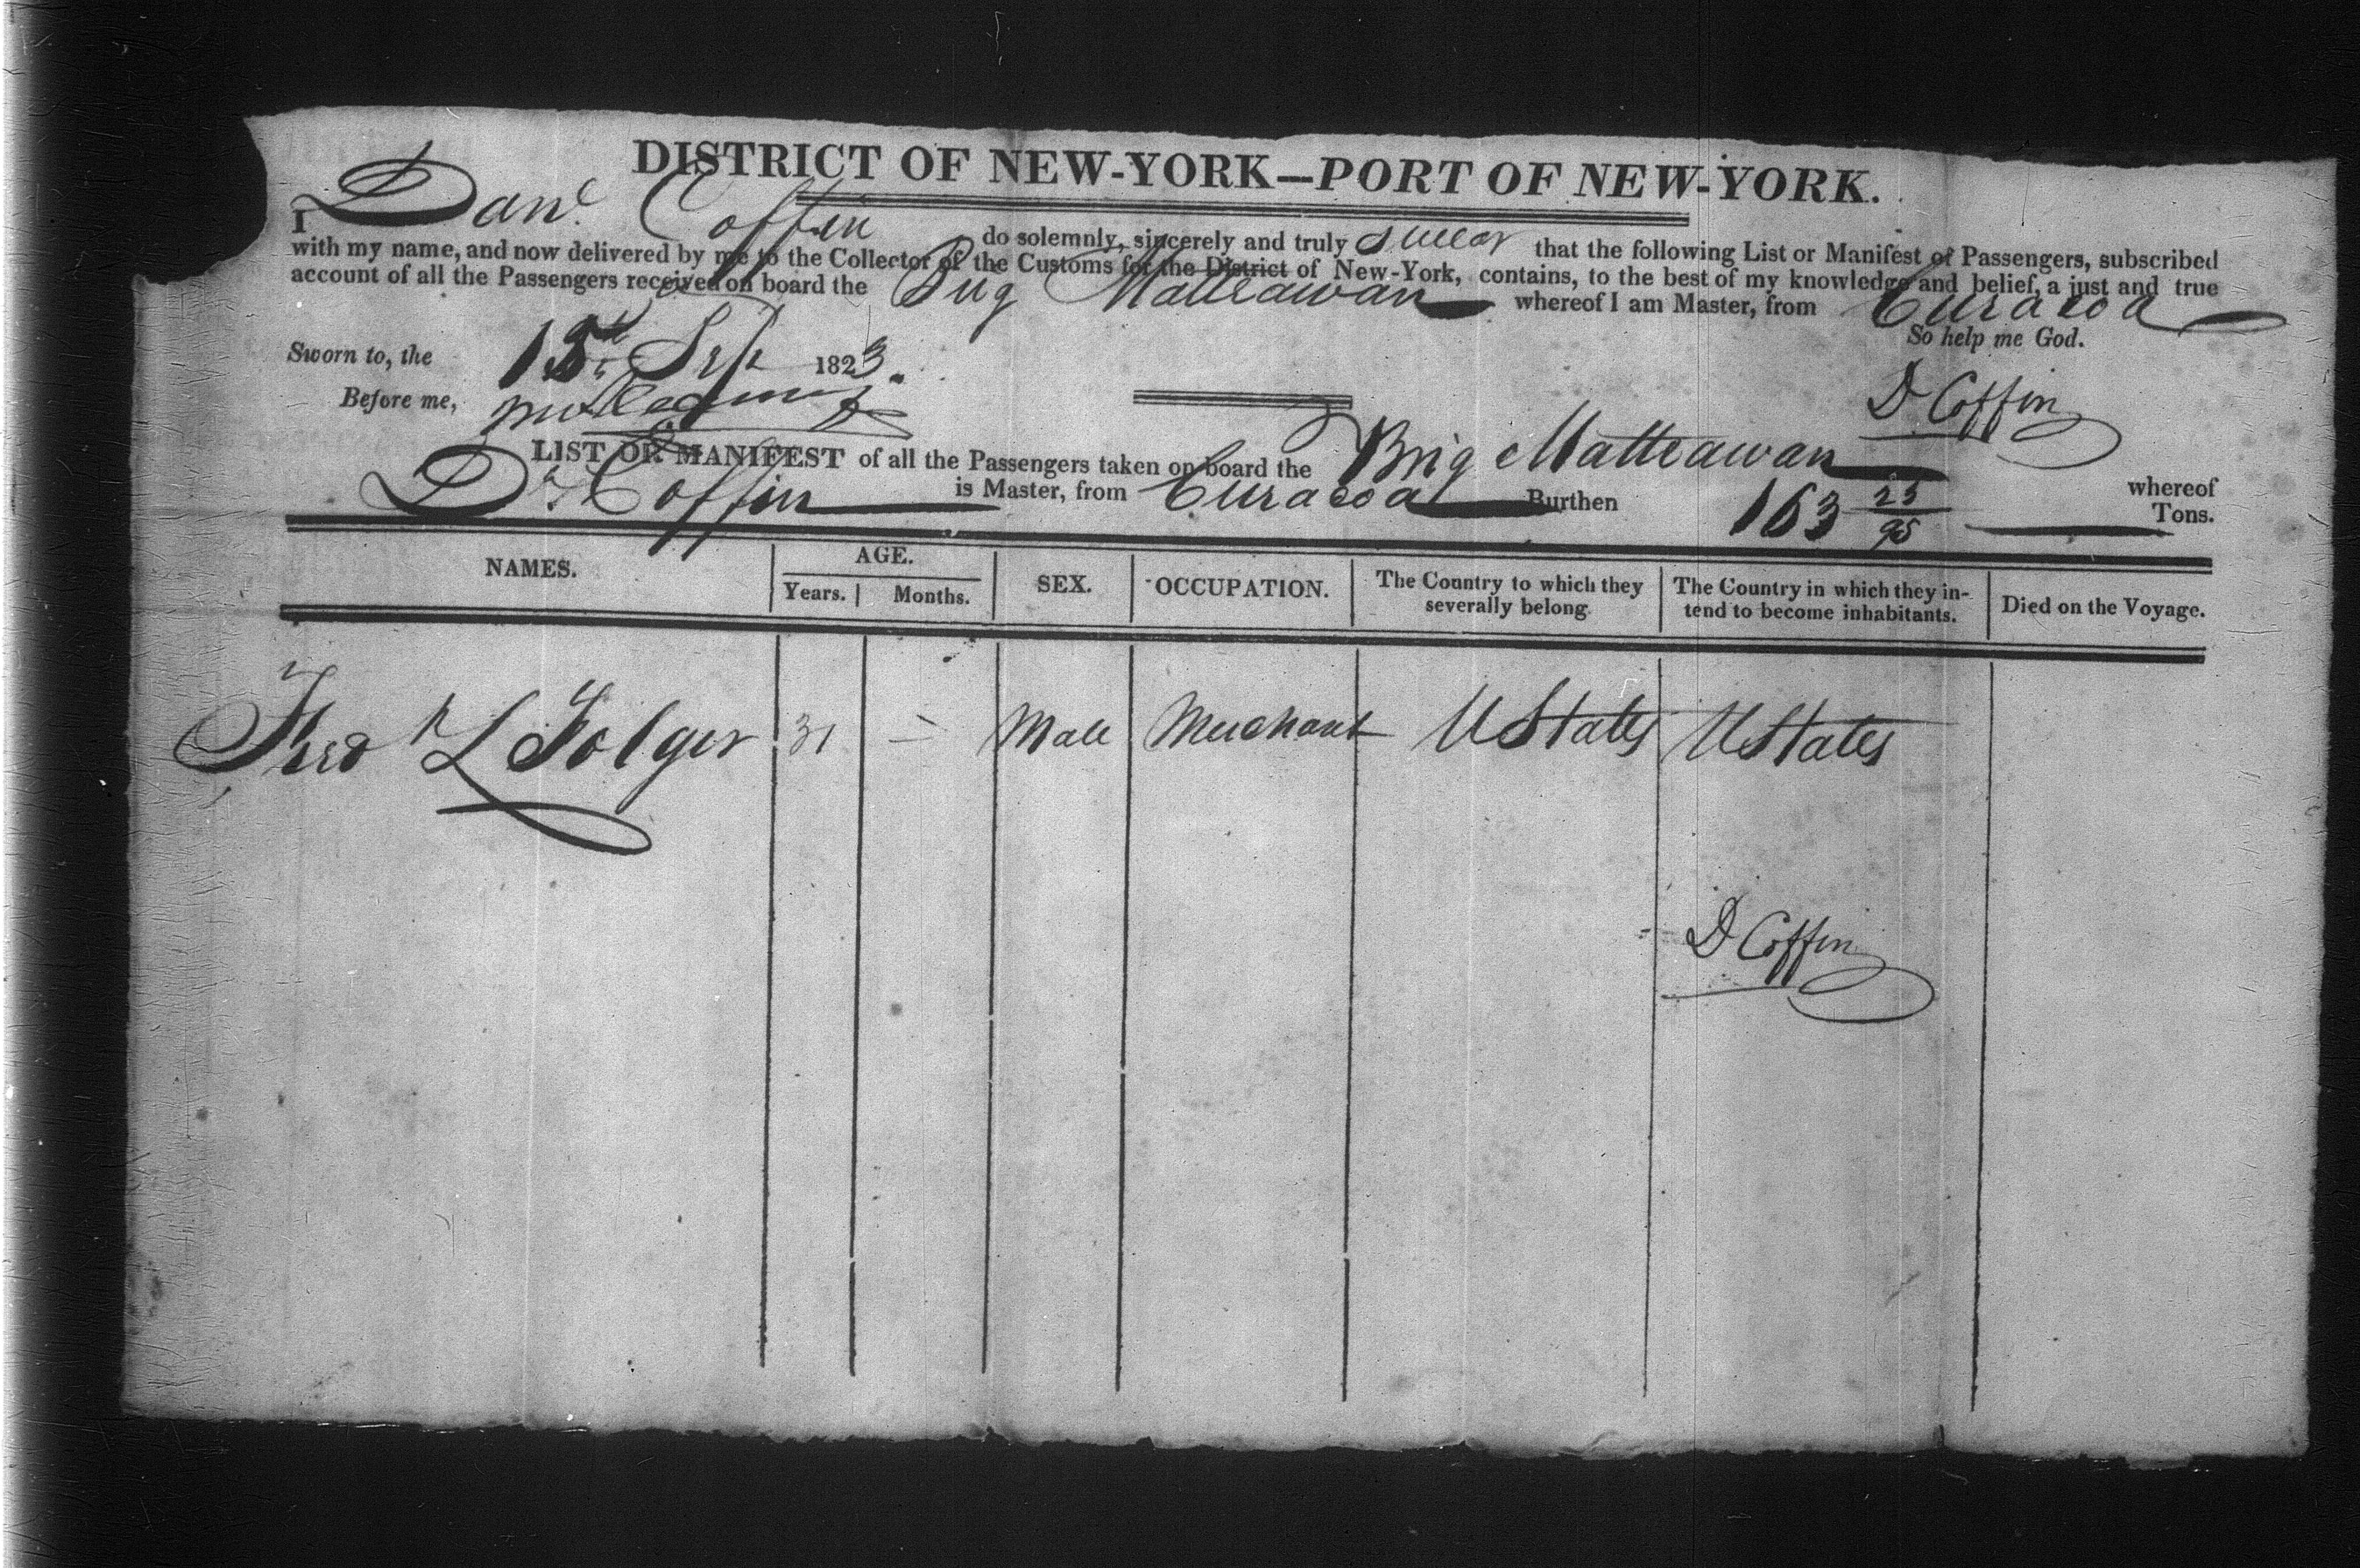 DISTRICT OF NEW-YORK—PORT OF NEW-YORK.
I Danl. Coffin do solemnly, sincerely and truly swear that the following List or Manifest of Passengers, subscribed
with my name, and now delivered by me to the Collector of the Customs for the District of New-York, contains, to the best of my knowledge and belief, a just and true
account of all the Passengers received on board the Brig Matteawan whereof I am Master, from Curacoa
So help me God.
Sworn to, the Sep 1823.
D Coffin
Before me,
LIST OR MANIFEST of all the Passengers taken on board the Brig Matteawan whereof
D. Coffin is Master, from Curacoa Burthen 163 25/95 Tons.
NAMES. AGE. Years. Months. SEX. OCCUPATION. The Country to which they severally belong. The Country in which they intend to become inhabitants. Died on the Voyage.
Fred k L Folger 31 — Male Merchant U States U States
D Coffin